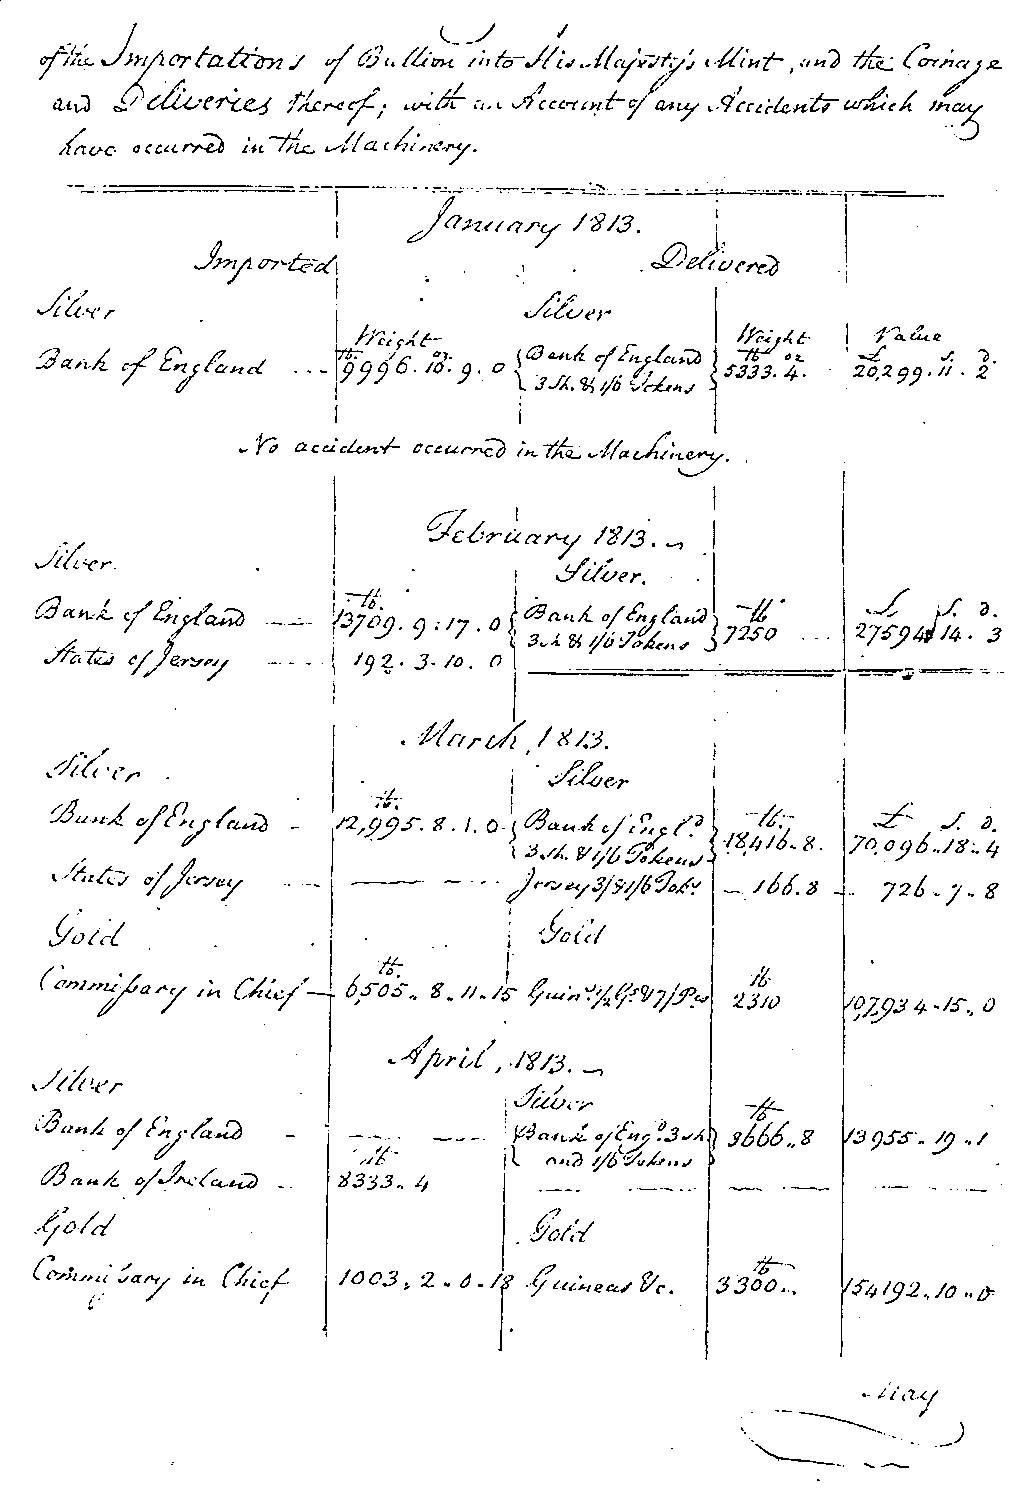 of the Importations of Bullion into His Majesty's Mint, and the Coinage
and Deliveries thereof; with an Account of any Accidents which may
have occurred in the Machinery.
January 1813.
Imported Delivered
Silver Silver
Weight Weight Value
lb. oz. lb oz £ S. D.
Bank of England --- 9996. 10. 9. 0 { Bank of England } 5333. 4. 20,299. 11. 2
3 Sh. & 1/6 Tokens
No accident occurred in the Machinery.
February 1813.
Silver. Silver.
lb. lb £ S. D.
Bank of England --- 13709. 9. 17. 0 { Bank of England } 7250 --- 27594. 14. 3
3 Sh & 1/6 Tokens
States of Jersey --- 192. 3. 10. 0
March, 1813.
Silver Silver
lb. lb. £ S. D.
Bank of England - 12,995. 8. 1. 0 { Bank of Engld. } 18,416.. 8. 70,096.. 18.. 4
3 Sh. & 1/6 Tokens
States of Jersey --- Jersey 3/ & 1/6 Toks — 166. 8 — 726. 7. 8
Gold Gold
lb. lb
Commissary in Chief — 6,505.. 8.. 11.. 15 Guins. 1/2 Gs. & 7/ Pcs 2310 107,934.. 15.. 0
April, 1813.
Silver Silver
lb
Bank of England - --- { Bank of Engd. 3 Sh } 3666.. 8 13955.. 19.. 1
and 1/6 Tokens
lb
Bank of Ireland - 8333.. 4
Gold Gold
lb
Commissary in Chief 1003. 2.. 0.. 18 Guineas &c. 3300.. 154192.. 10.. 0
May